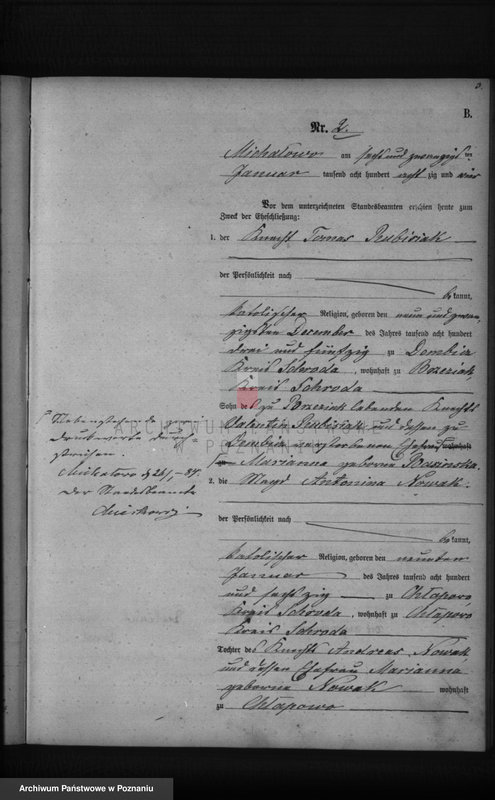 B.
Nr. 2.
Michalowo am sechs und zwanzigsten
Januar tausend acht hundert acht zig und vier
Vor dem unterzeichneten Standesbeamten erschien heute zum
Zweck der Eheschließung:
1. der Knecht Tomas Kubisiak
der Persönlichkeit nach
be kannt,
katolischer Religion, geboren den neun und zwan-
zigsten December des Jahres tausend acht hundert
drei und fünfzig zu Dembicz
Kreis Schroda, wohnhaft zu
Kreis Schroda
Sohn des zu lebenden Knechts
Valentin Kubisiak und dessen zu
verstorbenen Ehefrau wohnhaft
zu Marianna geborne
2. die Magd Antonina Nowak.
der Persönlichkeit nach
be kannt,
katolischer Religion, geboren den neunten
Januar des Jahres tausend acht hundert
und sechszig zu Chłapowo
Kreis Schroda, wohnhaft zu Chłapowo
Kreis Schroda
Tochter des Knechts Andreas Nowak
und dessen Ehefrau Marianna
geborne Nowak wohnhaft
zu Chłapowo
Nebenstehende
Druckworte durch-
strichen.
Michalowo d 26/1
Der Standesbeamte
ARCHIWUM PAŃSTWOWE
W POZNANIU
Archiwum Państwowe w Poznaniu